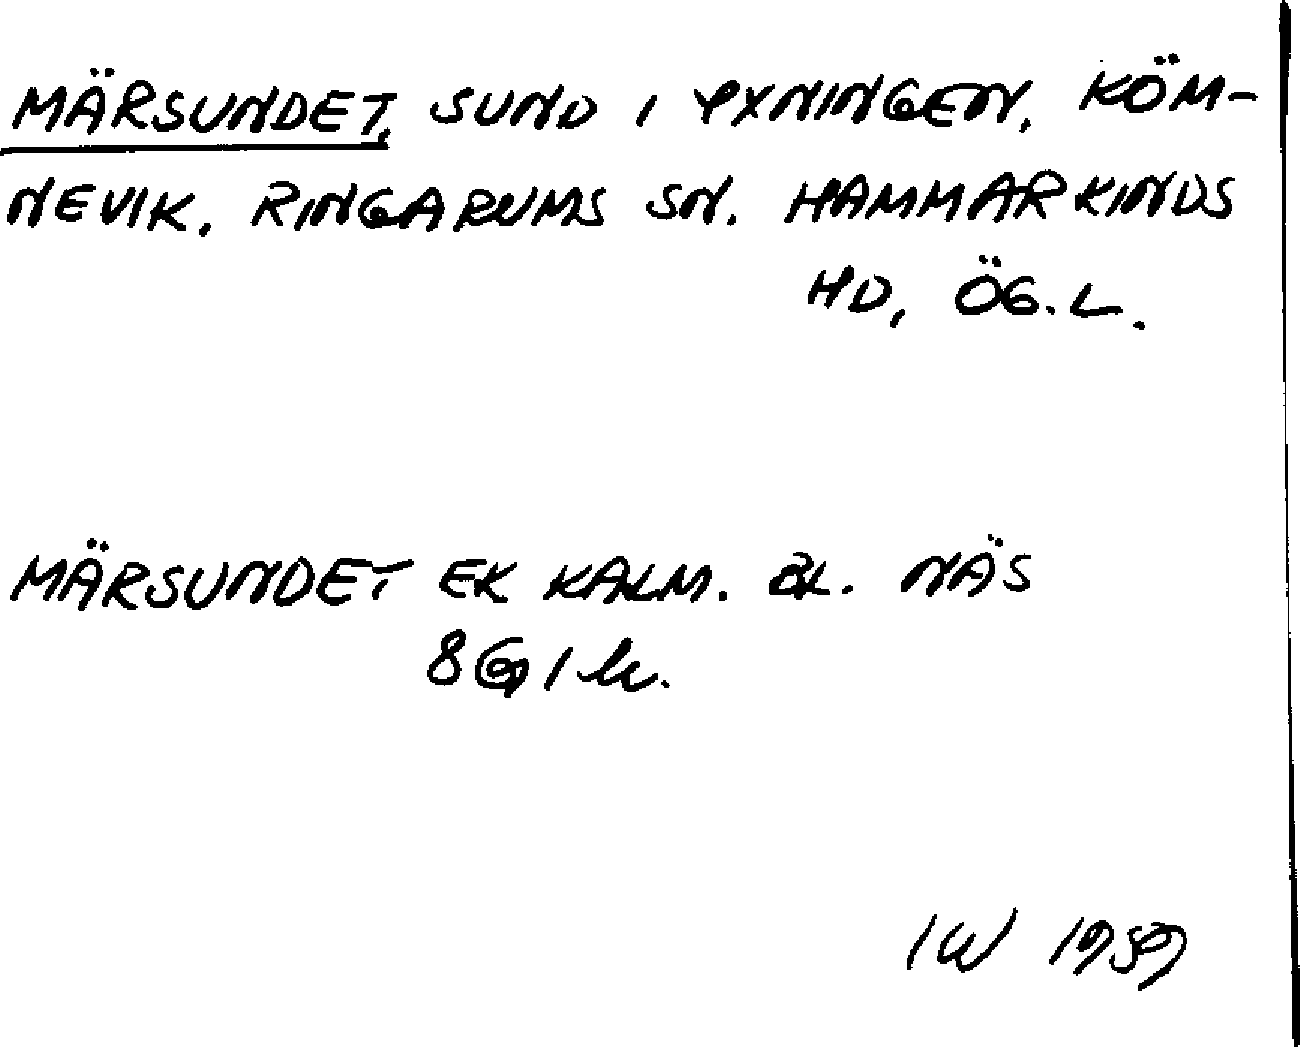 MÄRSUNDET, SUND I YXNINGEN, KÖM-
NEVIK, RINGARUMS SN. HAMMARKINDS
HD, ÖG.L.
MÄRSUNDET EK KALM. BL. NÄS
8 G 1 k.
IW 1959